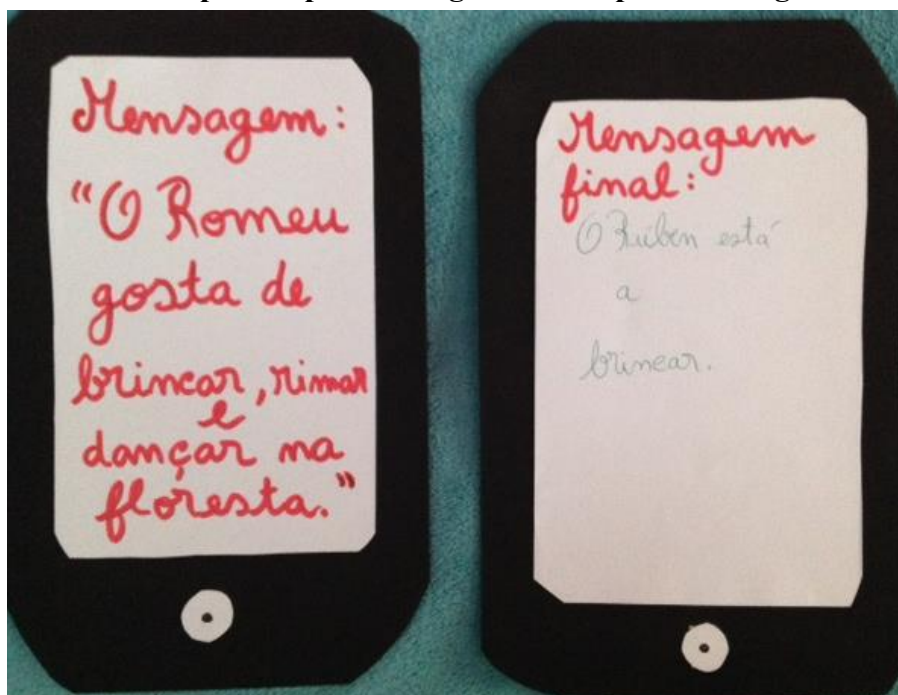 Mensagem:
"O Romeu
gosta de
brincar, rimar
e
dançar na
floresta."
Mensagem
final:
O Rúben está
a
brincar.